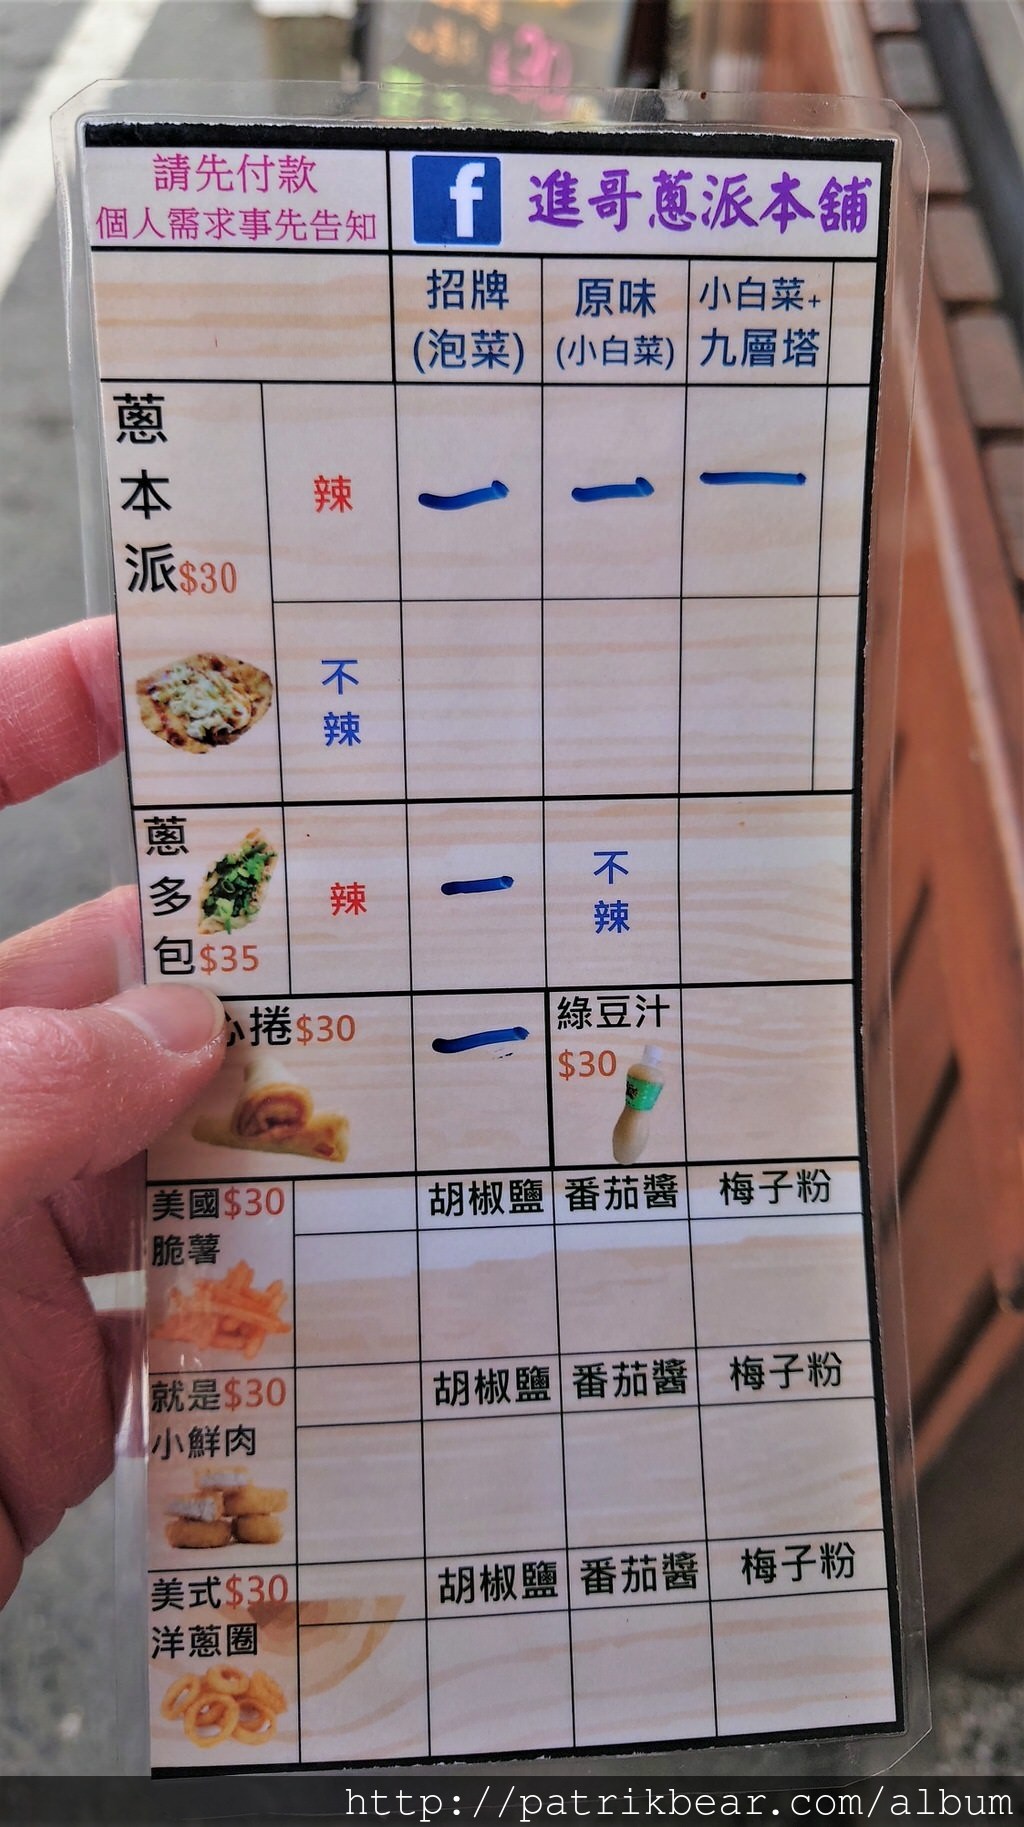 請先付款
個人需求事先告知
f 進哥蔥派本舖
招牌
(泡菜)
原味
(小白菜)
小白菜+
九層塔
蔥
本
派$30
辣
不
辣
蔥
多
包$35
辣
不
辣
心捲$30
綠豆汁
$30
美國$30
脆薯
胡椒鹽 番茄醬 梅子粉
就是$30
小鮮肉
胡椒鹽 番茄醬 梅子粉
美式$30
洋蔥圈
胡椒鹽 番茄醬 梅子粉
http://patrikbear.com/album